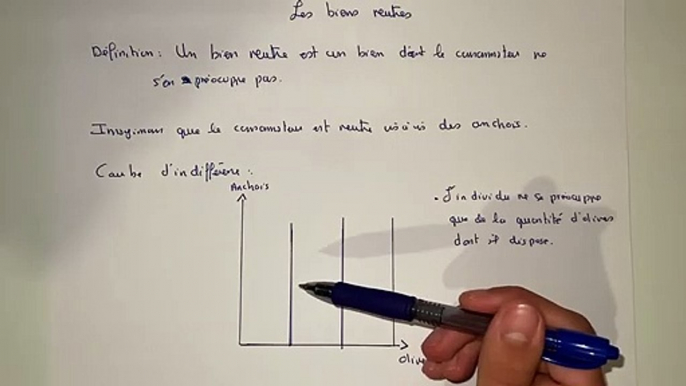 Les biens neutres
Définition: Un bien neutre est un bien dont le consommateur ne
s'en préoccupe pas.
Imaginons que le consommateur est neutre vis à vis des anchois.
Courbe d'indifférence:
Anchois
- L'individu ne se préoccupe
que de la quantité d'olives
dont il dispose.